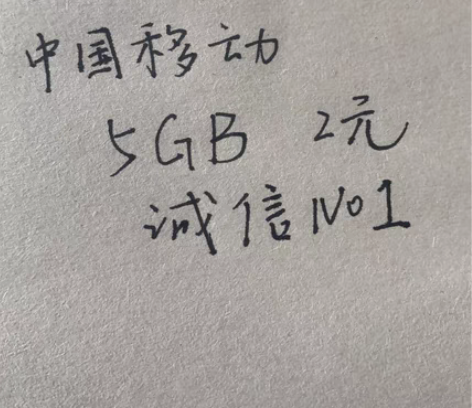 中国移动
5GB 2元
诚信No1